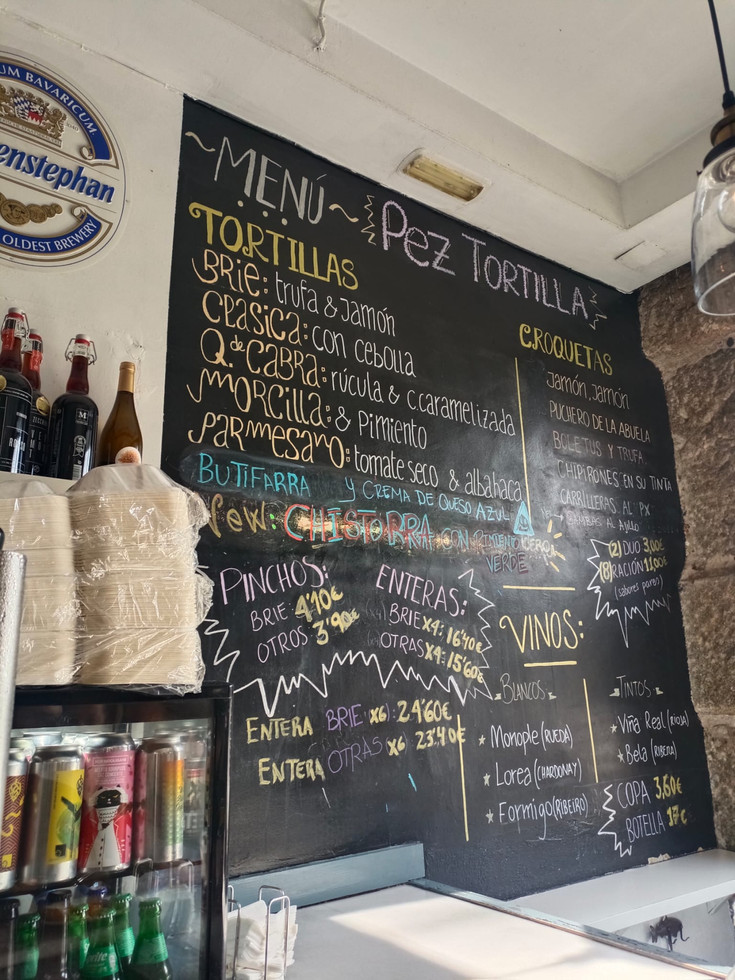 UM BAVARICUM
enstephan
OLDEST BREWERY
MENÚ
Pez Tortilla
TORTILLAS
BRIE: trufa & Jamón
CLASICA: con cebolla
Q. de CABRA: rúcula & c.caramelizada
MORCILLA: & Pimiento
PARMESANO: tomate seco & albahaca
BUTIFARRA Y CREMA DE QUESO AZUL
New: CHISTORRA CON PIMIENTO
VERDE
PINCHOS:
BRIE: 4'10€
OTROS: 3'90€
ENTERAS:
BRIE x4: 16'40€
OTRAS x4: 15'60€
ENTERA BRIE x6: 24'60€
ENTERA OTRAS x6 23'40€
CROQUETAS
Jamón, Jamón
PUCHERO DE LA ABUELA
BOLETUS Y TRUFA
CHIPIRONES EN SU TINTA
CARRILLERAS AL PX
(2) DUO 3,00€
(8) RACIÓN 11,00€
(sabores pares)
VINOS:
BLANCOS
Monople (RUEDA)
Lorea (CHARDONAY)
Formigo (RIBEIRO)
TINTOS
Viña Real (RIOJA)
Bela (RIBERA)
COPA 3,60€
BOTELLA 17€